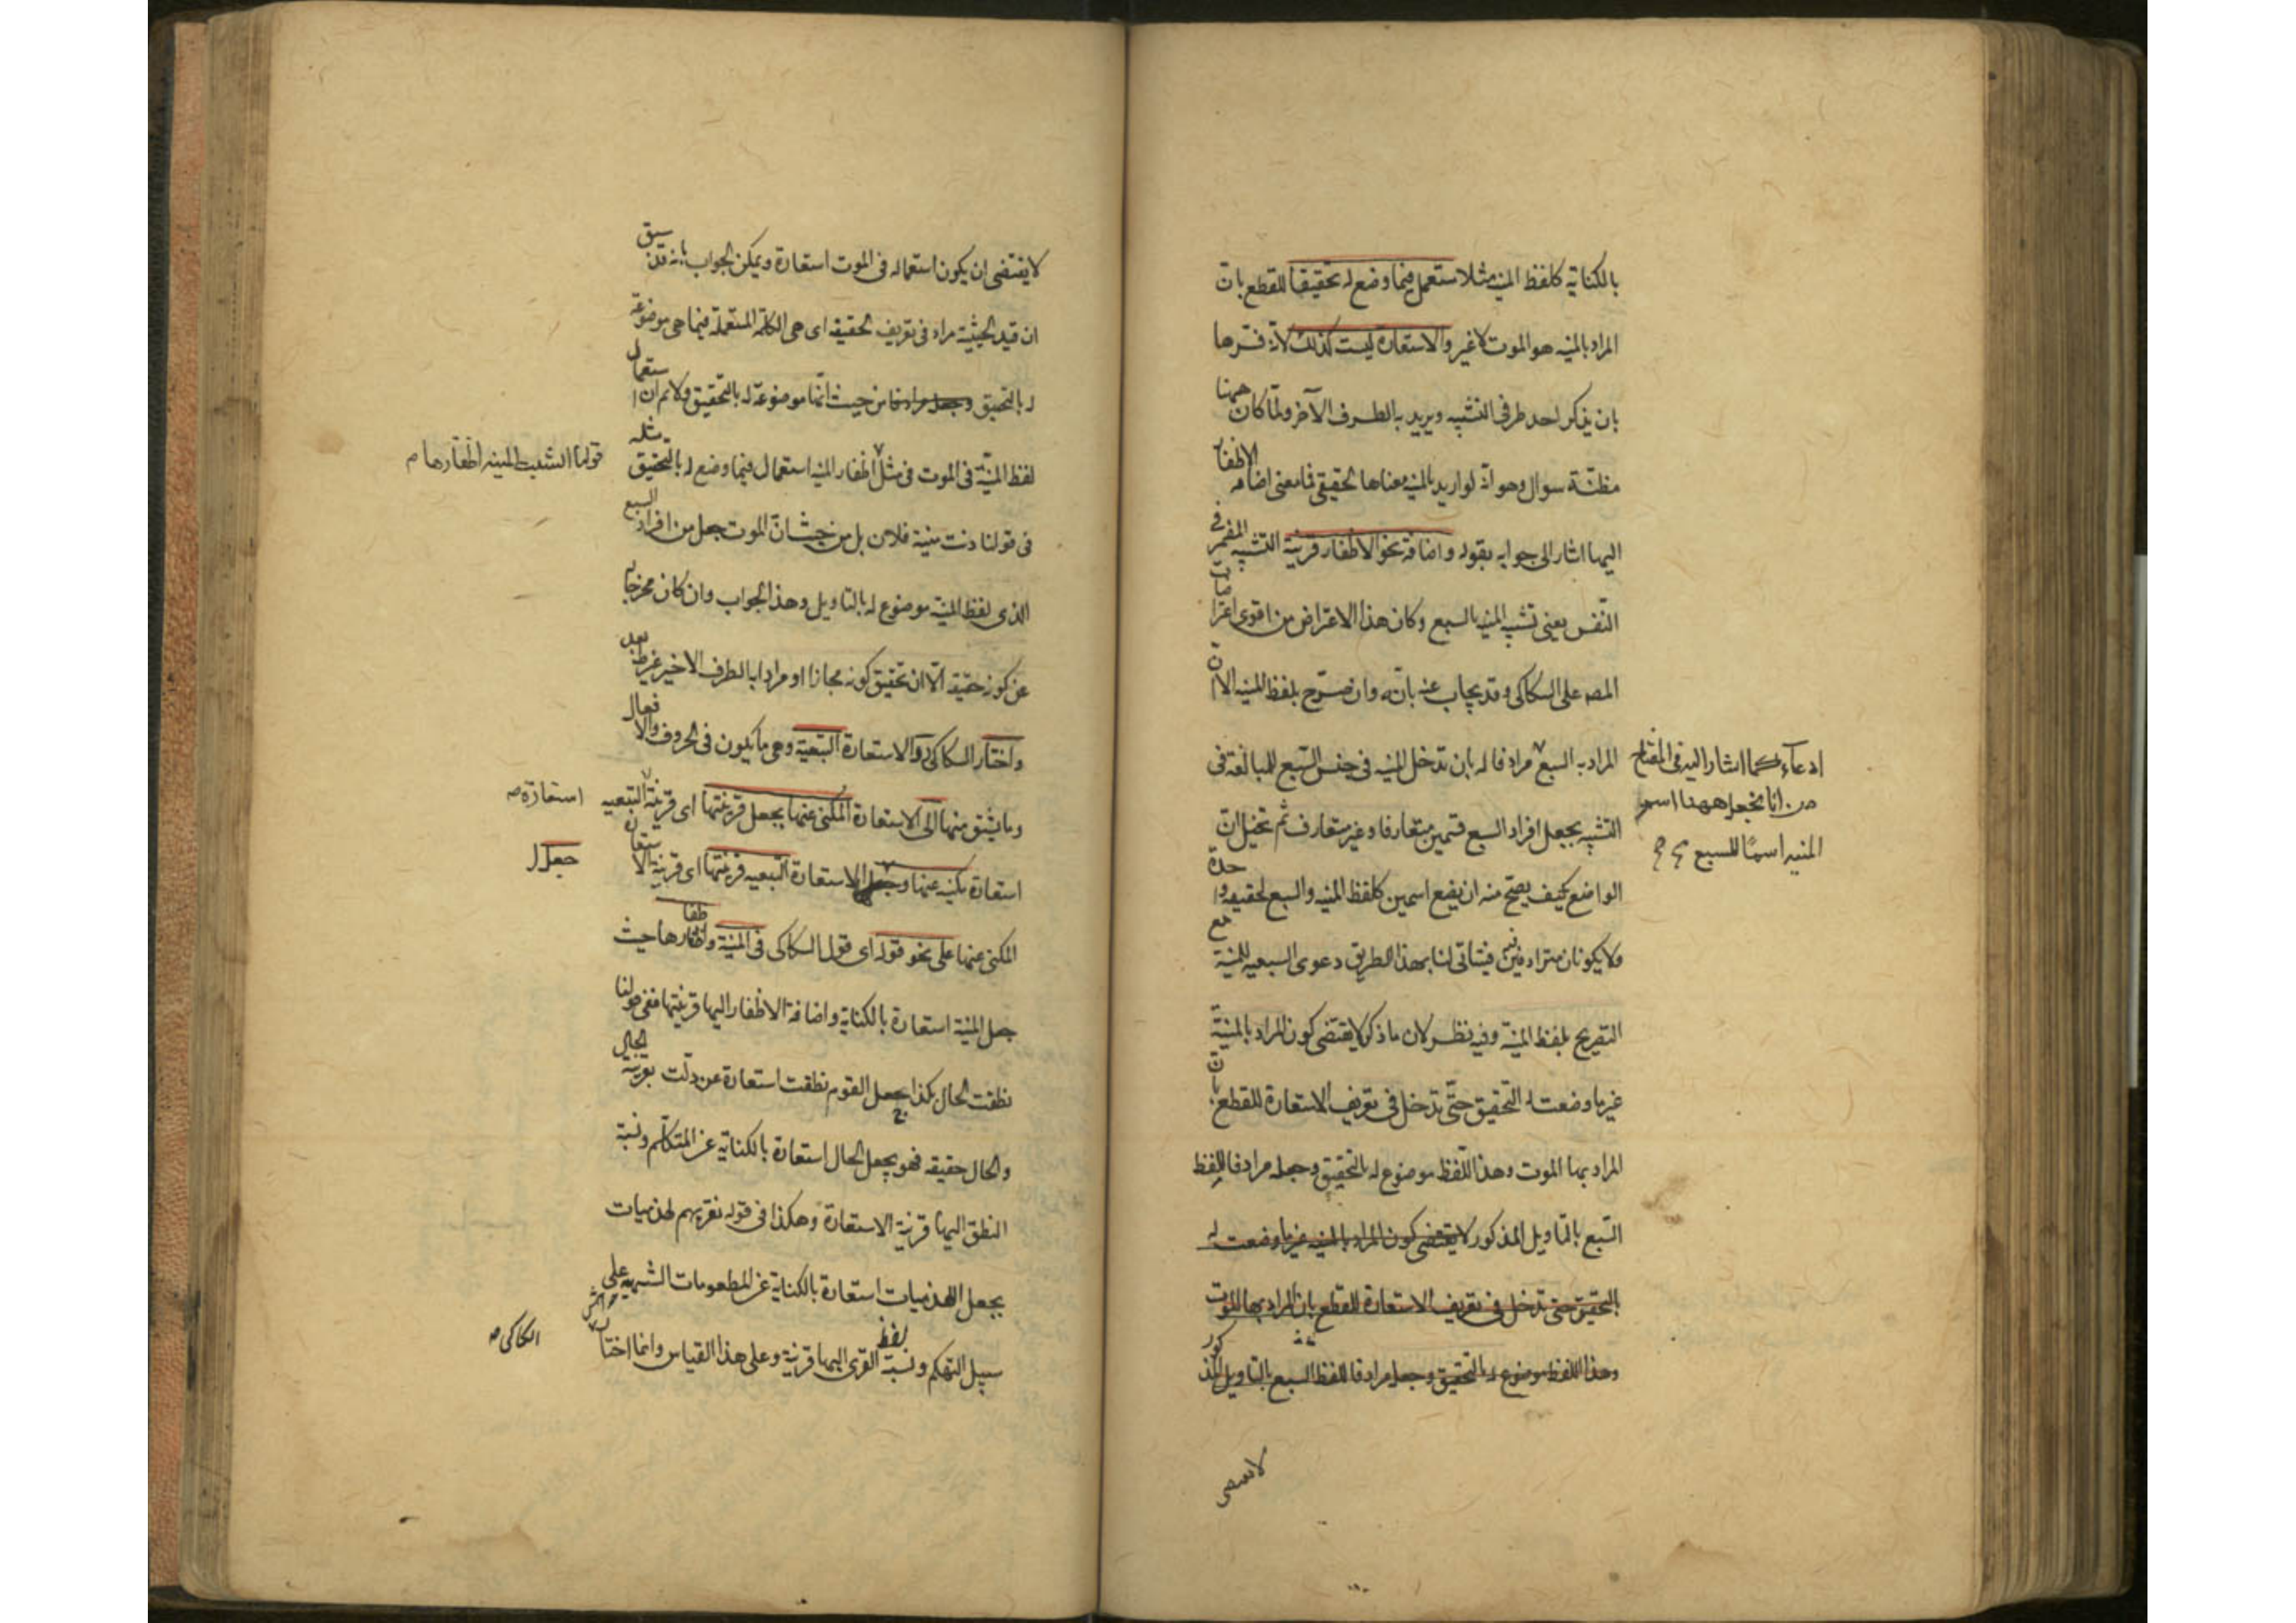 بالكناية كلفظ المنية مثلا مستعمل فيما وضع له تحقيقا للقطع بان
المراد بالمنية هو الموت لا غير والاستعارة ليست كذلك لانه فسرها
بان يذكر احد طرفى التشبيه ويريد به الطرف الآخر ولما كان ههنا
مظنة سوال وهو انه لو اريد بالمنية معناها الحقيقى فما معنى اضافة الاظفار
اليها اشار الى جوابه بقوله واضافة نحو الاظفار قرينة التشبيه المضمر فى
النفس يعنى تشبيه المنية بالسبع وكان هذا الاعتراض من اقوى اعتراضات
المصـ على السكاكى وقد يجاب عنه بانه وان صرح بلفظ المنية الا ان
المراد به السبع مرادفا له بان تدخل المنية فى جنس السبع للمبالغة فى
ادعاء كما اشار اليه فى المفتاح
من انا نجعل ههنا اسم
المنية اسما للسبع
التشبيه بجعل افراد السبع قسمين متعارفا وغير متعارف ثم تخيل ان
الواضع كيف يصح منه ان يضع اسمين كلفظ المنية والسبع لحقيقة واحدة
ولا يكونان مترادفين فيتأتى لنا بهذا الطريق دعوى السبعية للمنية مع
التصريح بلفظ المنية وفيه نظر لان ما ذكر لا يقتضى كون المراد بالمنية
غير ما وضعت له بالتحقيق حتى تدخل فى تعريف الاستعارة للقطع بان
المراد بها الموت وهذا اللفظ موضوع له بالتحقيق وجعله مرادفا للفظ
السبع بالتاويل المذكور لا يقتضى كون المراد بالمنية غير ما وضعت له
بالتحقيق حتى تدخل فى تعريف الاستعارة للقطع بان المراد بها الموت
وهذا اللفظ موضوع له بالتحقيق وجعله مرادفا للفظ السبع بالتاويل المذكور
لا يقتضى
لا يقتضى ان يكون استعماله فى الموت استعارة ويمكن الجواب بانه قد سبق
ان قيد الحيثية مراد فى تعريف الحقيقة اى هى الكلمة المستعملة فيما هى موضوعة
له بالتحقيق من حيث انها موضوعة له بالتحقيق ولا نم ان استعمال
لفظ المنية فى الموت فى مثل اظفار المنية استعمال فيما وضع له بالتحقيق مثله
قولنا انشبت المنية اظفارها
فى قولنا دنت منية فلان بل من حيث ان الموت جعل من افراد السبع
الذى لفظ المنية موضوع له بالتاويل وهذا الجواب وان كان مخرجا له
عن كونه حقيقة الا ان تحقيق كونه مجازا او مرادا به الطرف الاخير غير ظـ بعد
واختار السكاكى رد الاستعارة التبعية وهى ما يكون فى الحروف والافعال
وما يشتق منها الى الاستعارة المكنى عنها بجعل قرينتها اى قرينة التبعيه
استعارة
استعارة مكنية عنها وجعل الاستعارة التبعيه قرينتها اى قرينة الاستعارة
جعل
المكنى عنها على نحو قوله اى قول السكاكى فى المنية واظفارها حيث
جعل المنية استعارة بالكناية واضافة الاظفار اليها قرينتها ففى قولنا
نطقت الحال بكذا جعل القوم نطقت استعارة عن دلت بقرينة الحال
والحال حقيقة فهو يجعل الحال استعارة بالكناية عن المتكلم ونسبة
النطق اليها قرينة الاستعارة وهكذا فى قوله نقريهم لهذميات
يجعل اللهذميات استعارة بالكناية عن المطعومات الشهية على
سبيل التهكم ونسبة لفظ القرى اليها قرينة وعلى هذا القياس وانما اختار
السكاكى